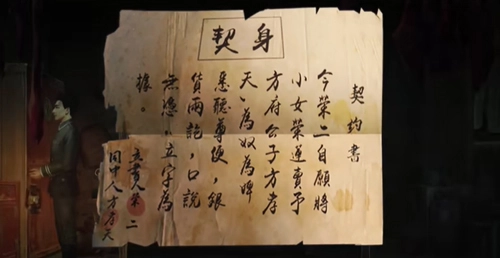 身契
契約書
今榮二自願將
小女榮蓮賣予
方府公子方孝
天、為奴為婢
悉聽尊便,銀
貨兩訖,口說
無憑,立字為
據。
立書人榮二
中人方孝天